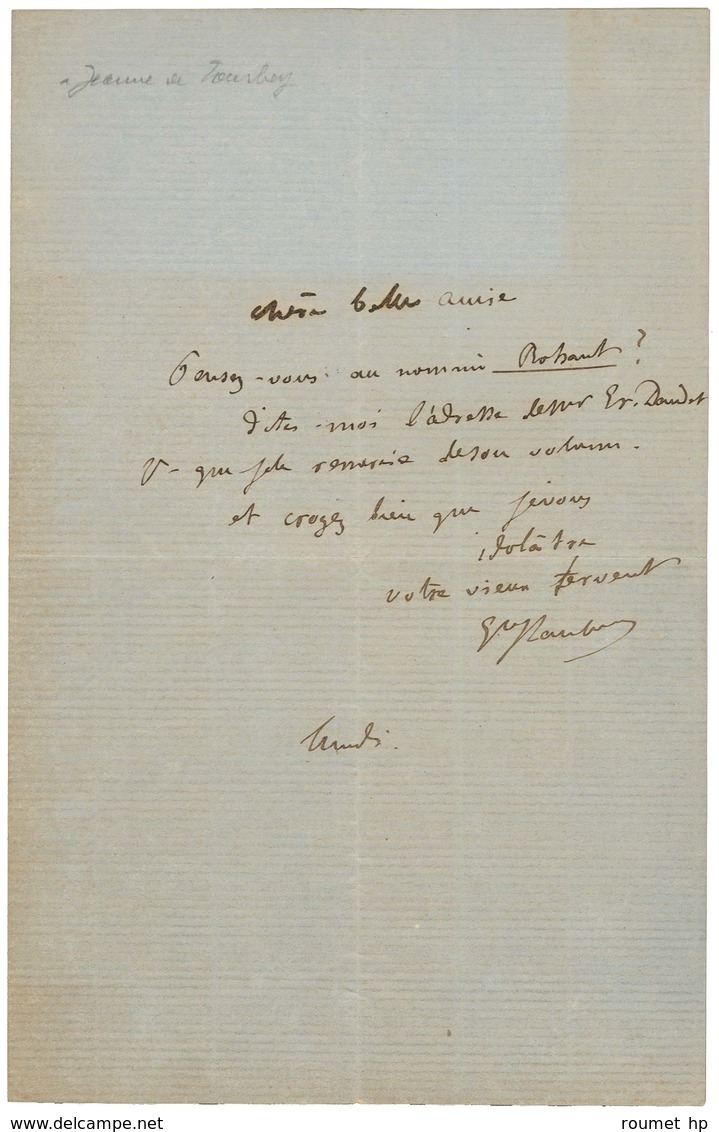 à Jeanne de Tourbey
chère belle amie
Pensez-vous au nommé Rohaut ?
dites-moi l'adresse de Mr Er. Daudet
p. que je le remercie de son volume.
et croyez bien que je vous
idolâtre
votre vieux fervent
Gve Flaubert
lundi.
roumet hp
www.delcampe.net